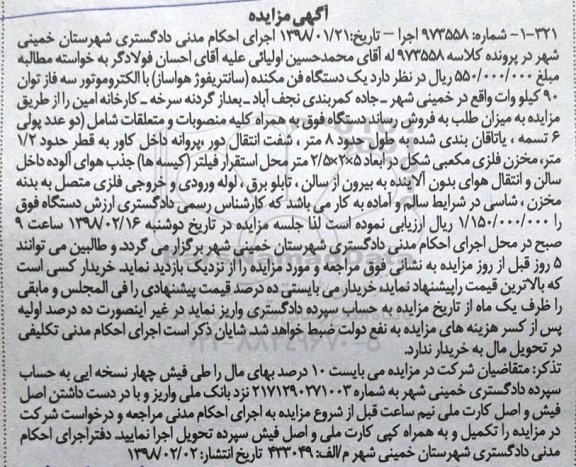 آگهی مزایده
۳۲۱-۱- شماره: ۹۷۳۵۵۸ اجرا – تاریخ: ۱۳۹۸/۰۱/۲۱ اجرای احکام مدنی دادگستری شهرستان خمینی
شهر در پرونده کلاسه ۹۷۳۵۵۸ له آقای محمدحسین اولیائی علیه آقای احسان فولادگر به خواسته مطالبه
مبلغ ۵۵۰/۰۰۰/۰۰۰ ریال در نظر دارد یک دستگاه فن مکنده (سانتریفوژ هواساز) با الکتروموتور سه فاز توان
۹۰ کیلو وات واقع در خمینی شهر – جاده کمربندی نجف آباد – بعداز گردنه سرخه – کارخانه امین را از طریق
مزایده به میزان طلب به فروش رساند دستگاه فوق به همراه کلیه منصوبات و متعلقات شامل (دو عدد پولی
۶ تسمه ، یاتاقان بندی شده به طول حدود ۸ متر ، شفت انتقال دور ،پروانه داخل کاور به قطر حدود ۱/۲
متر، مخزن فلزی مکعبی شکل در ابعاد ۵×۲×۲/۵ متر محل استقرار فیلتر (کیسه ها) جذب هوای آلوده داخل
سالن و انتقال هوای بدون آلاینده به بیرون از سالن ، تابلو برق ، لوله ورودی و خروجی فلزی متصل به بدنه
مخزن ، شاسی در شرایط سالم و آماده به کار می باشد که کارشناس رسمی دادگستری ارزش دستگاه فوق
را ۱/۱۵۰/۰۰۰/۰۰۰ ریال ارزیابی نموده است لذا جلسه مزایده در تاریخ دوشنبه ۱۳۹۸/۰۲/۱۶ ساعت ۹
صبح در محل اجرای احکام مدنی دادگستری شهرستان خمینی شهر برگزار می گردد و طالبین می توانند
۵ روز قبل از روز مزایده به نشانی فوق مراجعه و مورد مزایده را از نزدیک بازدید نماید خریدار کسی است
که بالاترین قیمت را پیشنهاد نماید خریدار می بایستی ده درصد قیمت پیشنهادی را فی المجلس و مابقی
را ظرف یک ماه از تاریخ مزایده به حساب سپرده دادگستری واریز نماید در غیر اینصورت ده درصد اولیه
پس از کسر هزینه های مزایده به نفع دولت ضبط خواهد شد. شایان ذکر است اجرای احکام مدنی تکلیفی
در تحویل مال به خریدار ندارد.
تذکر: متقاضیان شرکت در مزایده می بایست ۱۰ درصد بهای مال را طی فیش چهار نسخه ایی به حساب
سپرده دادگستری خمینی شهر به شماره ۲۱۷۱۲۹۰۲۷۱۰۰۳ نزد بانک ملی واریز و با در دست داشتن اصل
فیش و اصل کارت ملی نیم ساعت قبل از شروع مزایده به اجرای احکام مدنی مراجعه و درخواست شرکت
در مزایده را تکمیل و به همراه کپی کارت ملی و اصل فیش سپرده تحویل اجرا نمایید. دفتر اجرای احکام
مدنی دادگستری شهرستان خمینی شهر م/الف: ۴۳۳۰۴۹ تاریخ انتشار: ۱۳۹۸/۰۲/۰۲